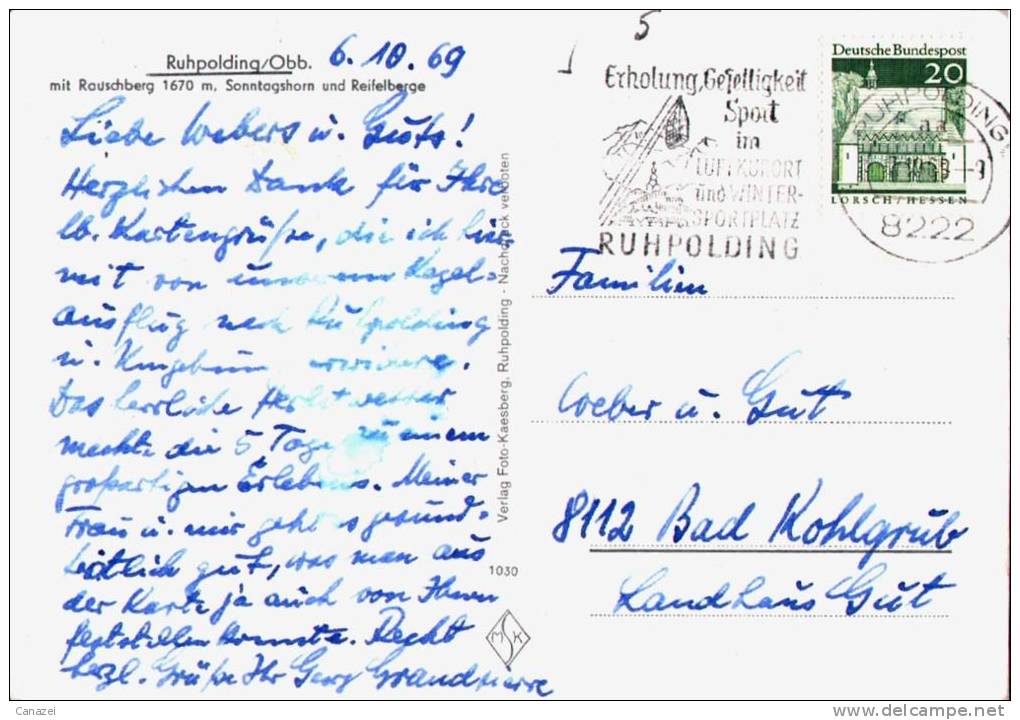 Ruhpolding/Obb. 6.10.69
mit Rauschberg 1670 m, Sonntagshorn und Reifelberge
Liebe Webers u. Guts!
Herzlichen Dank für Ihre
lb. Kartengrüße, die ich hier-
mit von unserem Kegel-
ausflug nach Ruhpolding
u. Umgebung erwidere.
Das herrliche Herbstwetter
machte die 5 Tage zu einem
großartigen Erlebnis. Meiner
Frau u. mir geht es gesund-
heitlich gut, was man aus
der Karte ja auch von Ihnen
feststellen konnte. Recht
herzl. Grüße Ihr Georg Grandpierre
Verlag Foto-Kaesberg, Ruhpolding - Nachdruck verboten
1030
MSK
5
Erholung, Geselligkeit
Sport
im
LUFTKURORT
und WINTER-
SPORTPLATZ
RUHPOLDING
Deutsche Bundespost
20
LORSCH/HESSEN
RUHPOLDING
8222
Familien
Weber u. Gut
8112 Bad Kohlgrub
Landhaus Gut
Canazei
www.delcampe.net